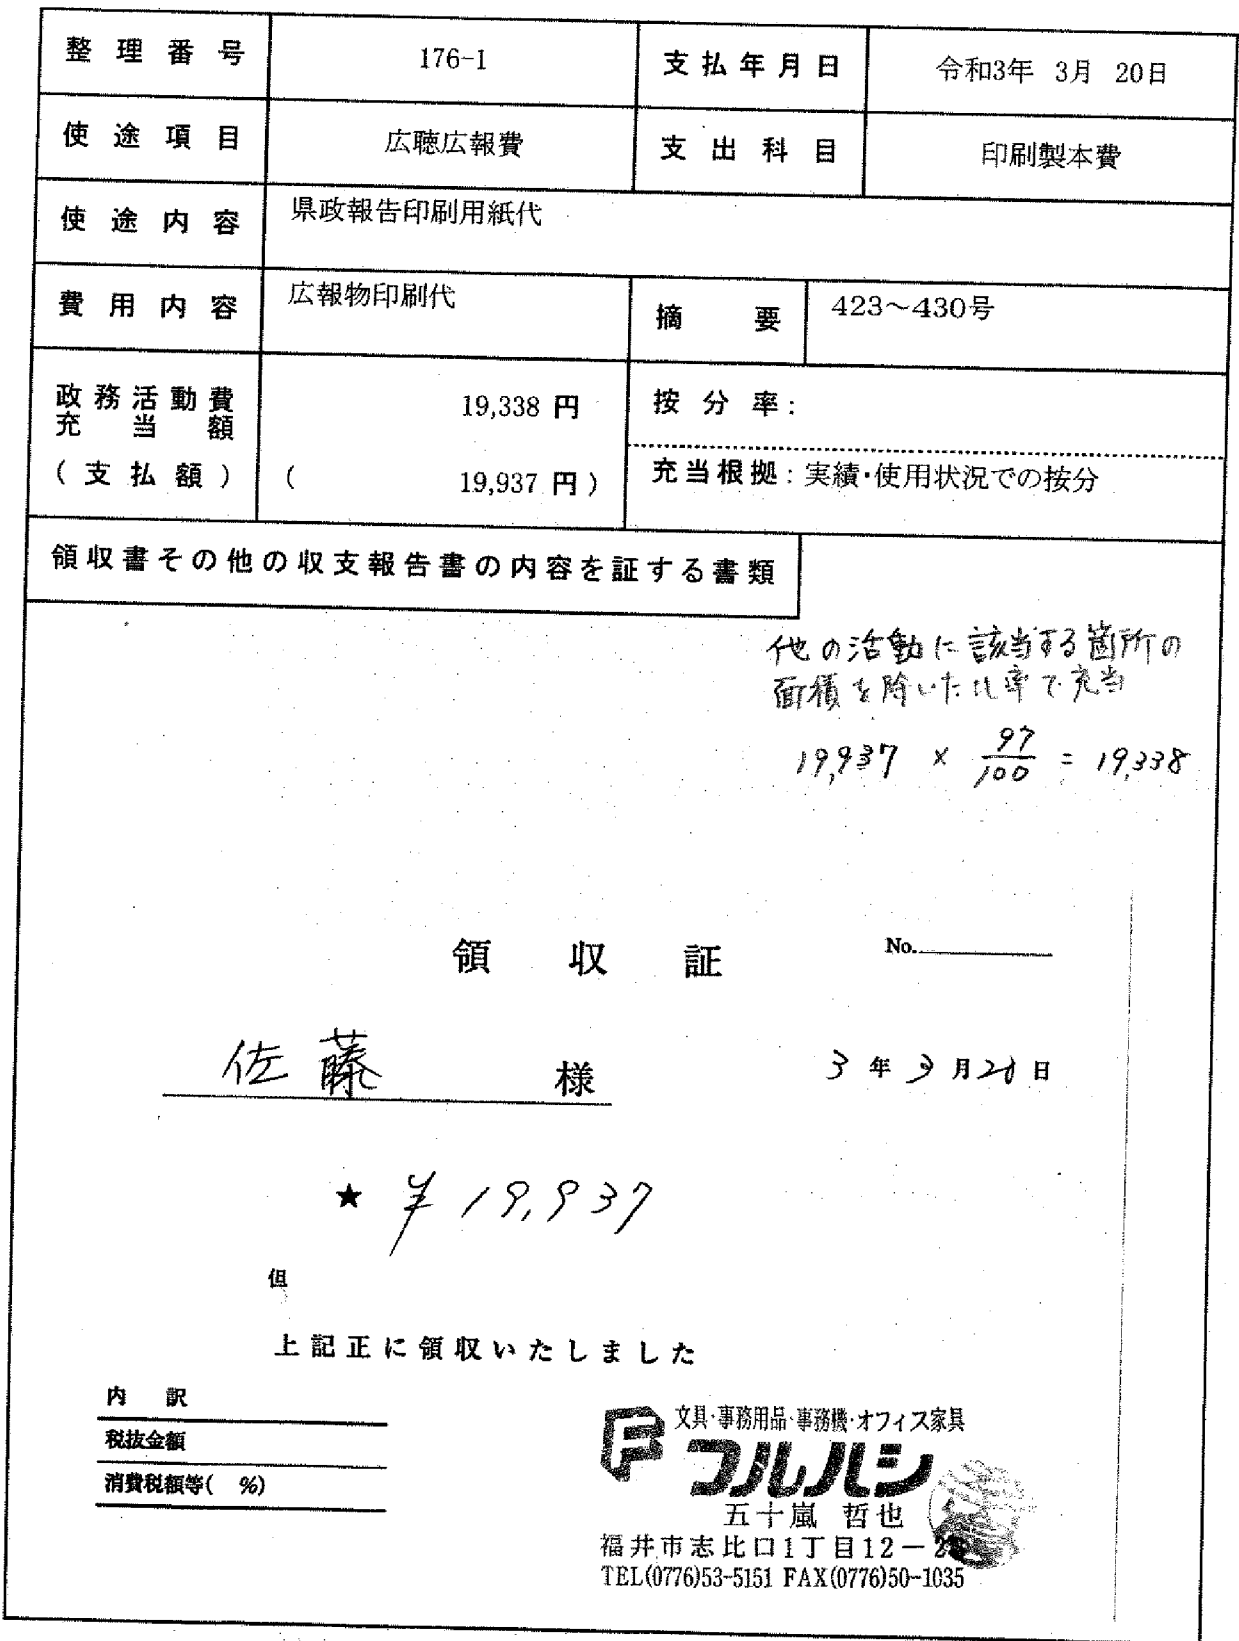 整理番号 176-1 支払年月日 令和3年 3月 20日
使途項目 広聴広報費 支出科目 印刷製本費
使途内容 県政報告印刷用紙代
費用内容 広報物印刷代 摘要 423～430号
政務活動費
充当額 19,338 円 按分率：
(支払額) ( 19,937 円) 充当根拠：実績・使用状況での按分
領収書その他の収支報告書の内容を証する書類
他の活動に該当する箇所の
面積を除いた比率で充当
19,937 × 97/100 = 19,338
領収証 No.
佐藤 様 3年3月20日
★ ¥19,937
但
上記正に領収いたしました
内訳
税抜金額
消費税額等( %)
文具・事務用品・事務機・オフィス家具
フルハシ
五十嵐 哲也
福井市志比口1丁目12-
TEL(0776)53-5151 FAX(0776)50-1035